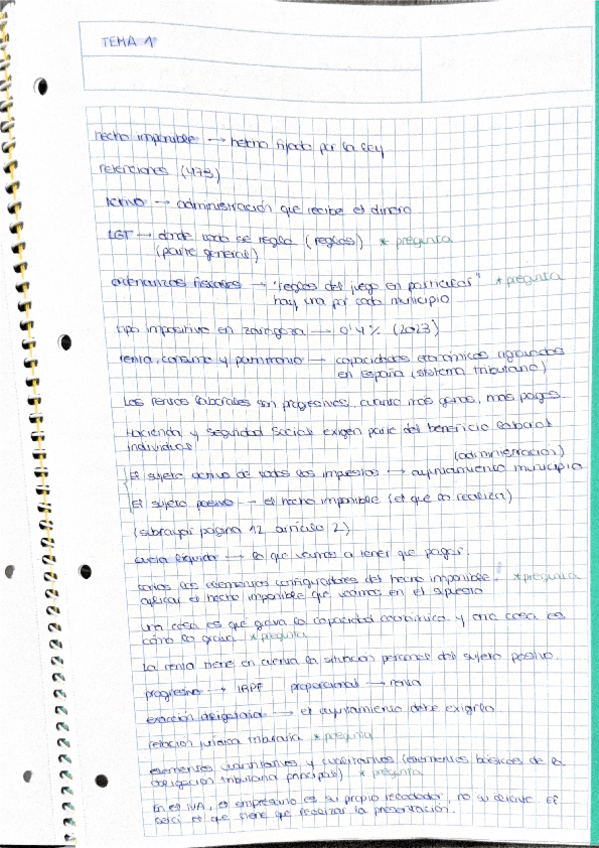 TEMA 1
hecho imponible → hecho fijado por la ley
retenciones (473)
activo → administración que recibe el dinero
LGT → donde todo se regla (reglas) * pregunta
(parte general)
ordenanzas fiscales → "reglas del juego en particular" * pregunta
hay una por cada municipio
tipo impositivo en zaragoza → 0'4% (2023)
renta, consumo y patrimonio → capacidades económicas agravadas
en España (sistema tributario)
Las rentas laborales son progresivas, cuanto más ganas, más pagas.
Hacienda y Seguridad Social exigen parte del beneficio laboral
individual
(administración)
El sujeto activo de todos los impuestos → ayuntamiento municipio
El sujeto pasivo → el hecho imponible (el que lo realiza)
(subrayar página 12 artículo 2)
cuota líquida → lo que vamos a tener que pagar.
todos los elementos configuradores del hecho imponible. * pregunta
aplicar el hecho imponible que veamos en el supuesto
una cosa es que grava la capacidad económica y otra cosa es
cómo la grava. * pregunta
La renta tiene en cuenta la situación personal del sujeto pasivo.
progresivo → IRPF proporcional → renta
exacción obligatoria → el ayuntamiento debe exigirlo
relación jurídica tributaria * pregunta
elementos cuantitativos y cualitativos (elementos básicos de la
obligación tributaria principal) * pregunta
En el IVA, el empresario es su propio recaudador, no su cliente. El
será el que tiene que realizar la presentación.